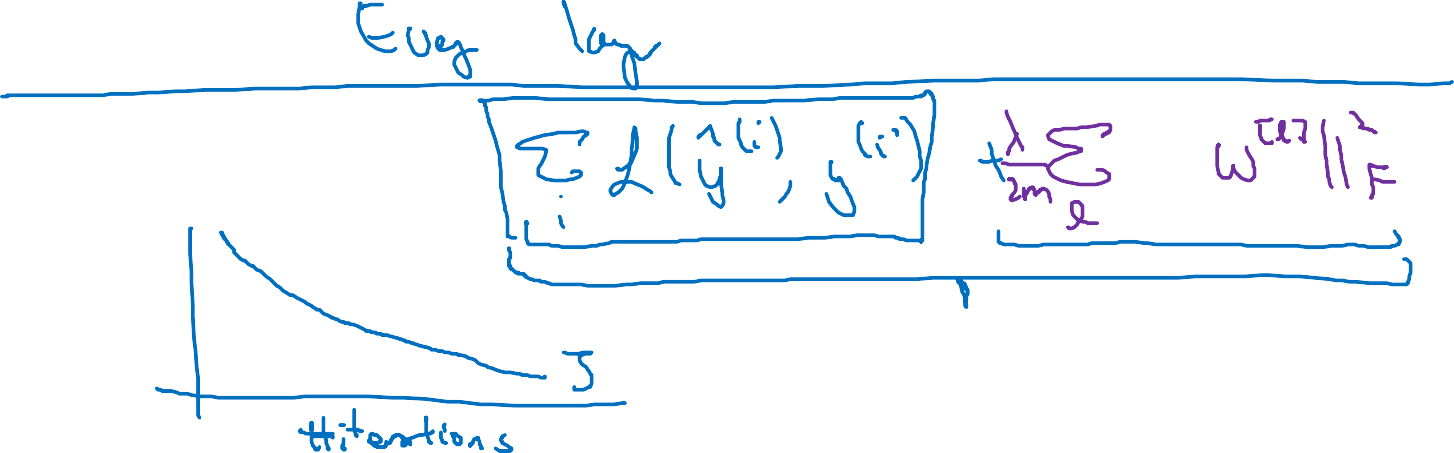 Every layer
∑ᵢ ℒ(ŷ⁽ⁱ⁾, y⁽ⁱ⁾) + λ/2m ∑ₗ w⁽[l]⁾||²_F
J
#iterations